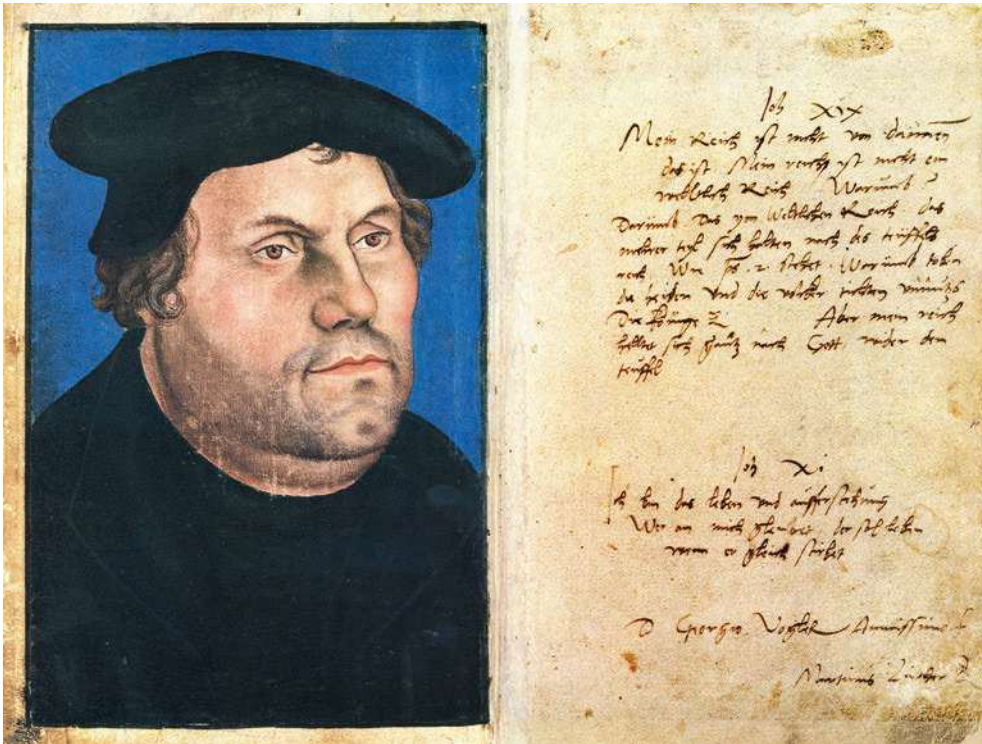 Joh xix
Mein Reich ist nicht von dannen
das ist Mein reich ist nicht ein
welltlich Reich Warumb?
Darumb Das ym Weltlichen Reich das
mehrer teyl sich hallten nach des teuffels
reich, Wie ps. 2. stehet. Warumb toben
die heiden Und die volcker tichten unnutz
Die Könige &c Aber mein reich
helltet sich gantz nach Gott wider den
teuffel
Joh xi
Ich bin das leben und aufferstehung
Wer an mich gleubet, der sol leben
wenn er gleich stirbet
D Georgio Vogler Amicissimo
Martinus Luther D